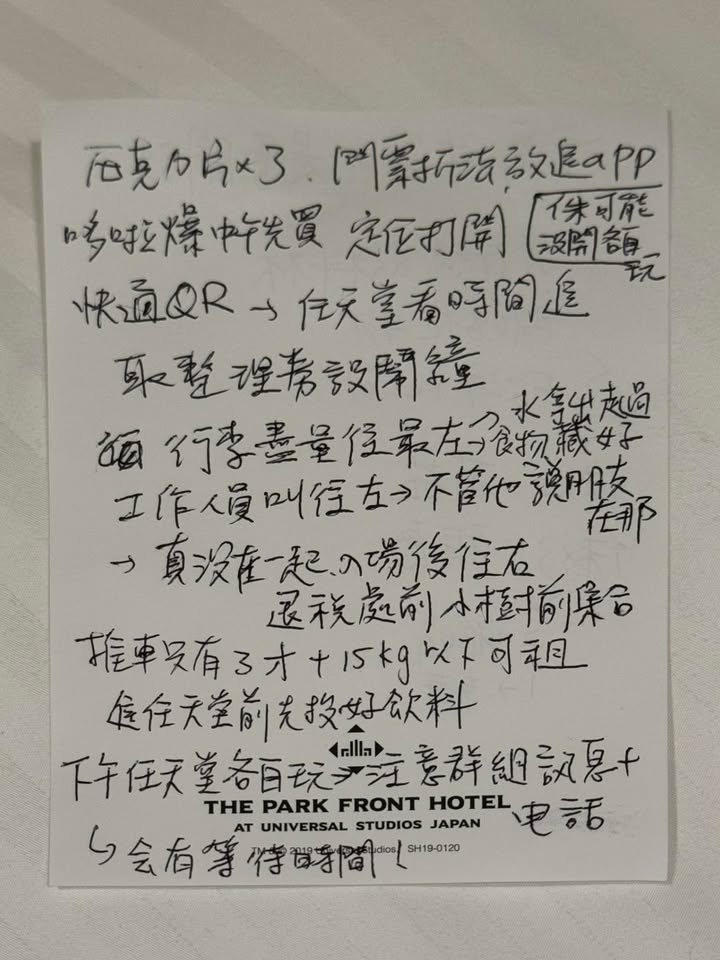 壓克力片×3、門票拆法,放進app
哆啦爆中午先買 定位打開
侏可能
沒開 各自
玩
快通QR → 任天堂看時間進
取整理券設鬧鐘
行李盡量往最左→水拿出起過
→食物藏好
工作人員叫往左→不管他說朋友
在那
→真沒在一起、入場後往右
退稅處前小樹前集合
推車只有3才+15kg以下可租
進任天堂前先投好飲料
下午任天堂各自玩→注意群組訊息+
電話
THE PARK FRONT HOTEL
AT UNIVERSAL STUDIOS JAPAN
↳会有等待時間!
TM & © 2019 Universal Studios. SH19-0120